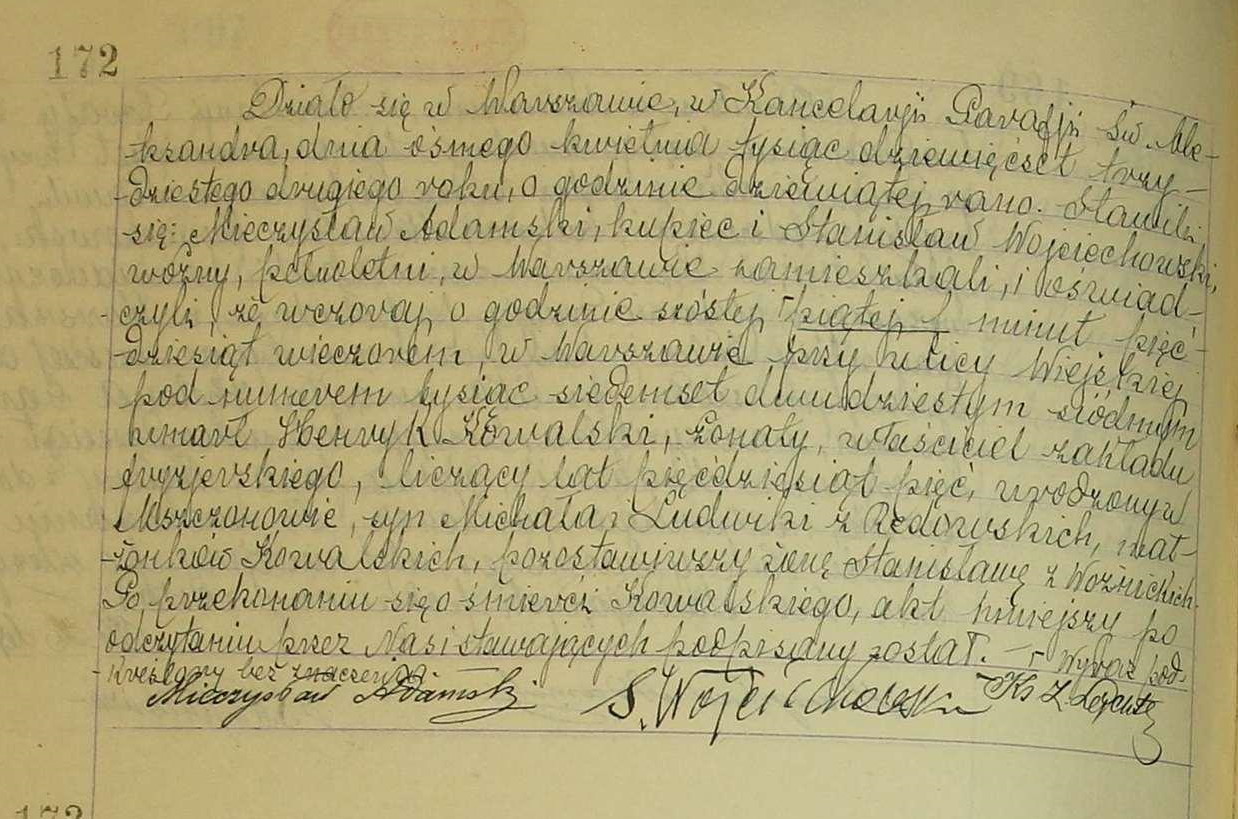 172
Działo się w Warszawie, w Kancelarji Parafji Św. Ale-
ksandra, dnia ósmego kwietnia tysiąc dziewięćset trzy-
dziestego drugiego roku, o godzinie dziewiątej rano. Stawili
się: Mieczysław Adamski, kupiec i Stanisław Wojciechowski,
woźny, pełnoletni, w Warszawie zamieszkali, i oświad-
czyli, że wczoraj o godzinie szóstej ⌈piątej⌉ minut pięć-
dziesiąt wieczorem, w Warszawie przy ulicy Wiejskiej
pod numerem tysiąc siedemset dwudziestym siódmym
umarł Henryk Kowalski, żonaty, właściciel zakładu
fryzjerskiego, liczący lat pięćdziesiąt pięć, urodzony w
Mszczonowie, syn Michała i Ludwiki z Rędowskich, mał-
żonków Kowalskich, pozostawiwszy żonę Stanisławę z Woźnickich.
Po przekonaniu się o śmierci Kowalskiego, akt niniejszy po
odczytaniu przez Nas i stawających podpisany został. — ⌈ Wyraz pod-
kreślony bez znaczenia.
Mieczysław Adamski S. Wojciechowski Ks Z.
172